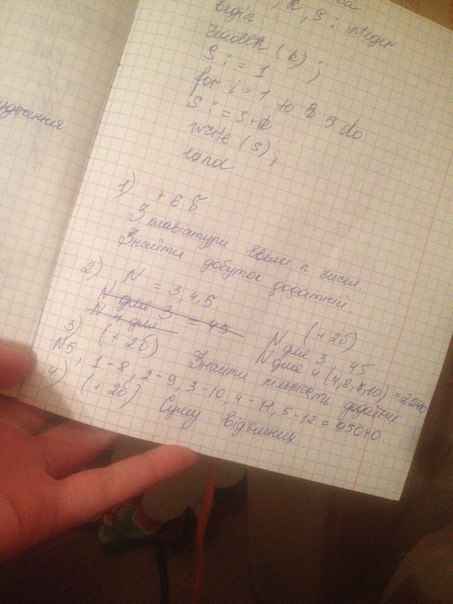 , k, S : integer
begin
readln (b) ;
S : = 1
for i = 1 to 5 do
write (S);
1) + 6 б
З клавіатури ввели n чисел
Знайти добуток додатній.
2) N = 3, 4, 5 (+ 2б)
N для 3 = 45 N для 3 = 45
N для 4 (4, 8, 7, 10) = 2240
3) (+ 2б) Знайти кількість додатніх
N5, 1 - 8, 2 - 9, 3 - 10, 4 - 11, 5 - 12 = 95040.
4) (+ 2б) Суму відємних